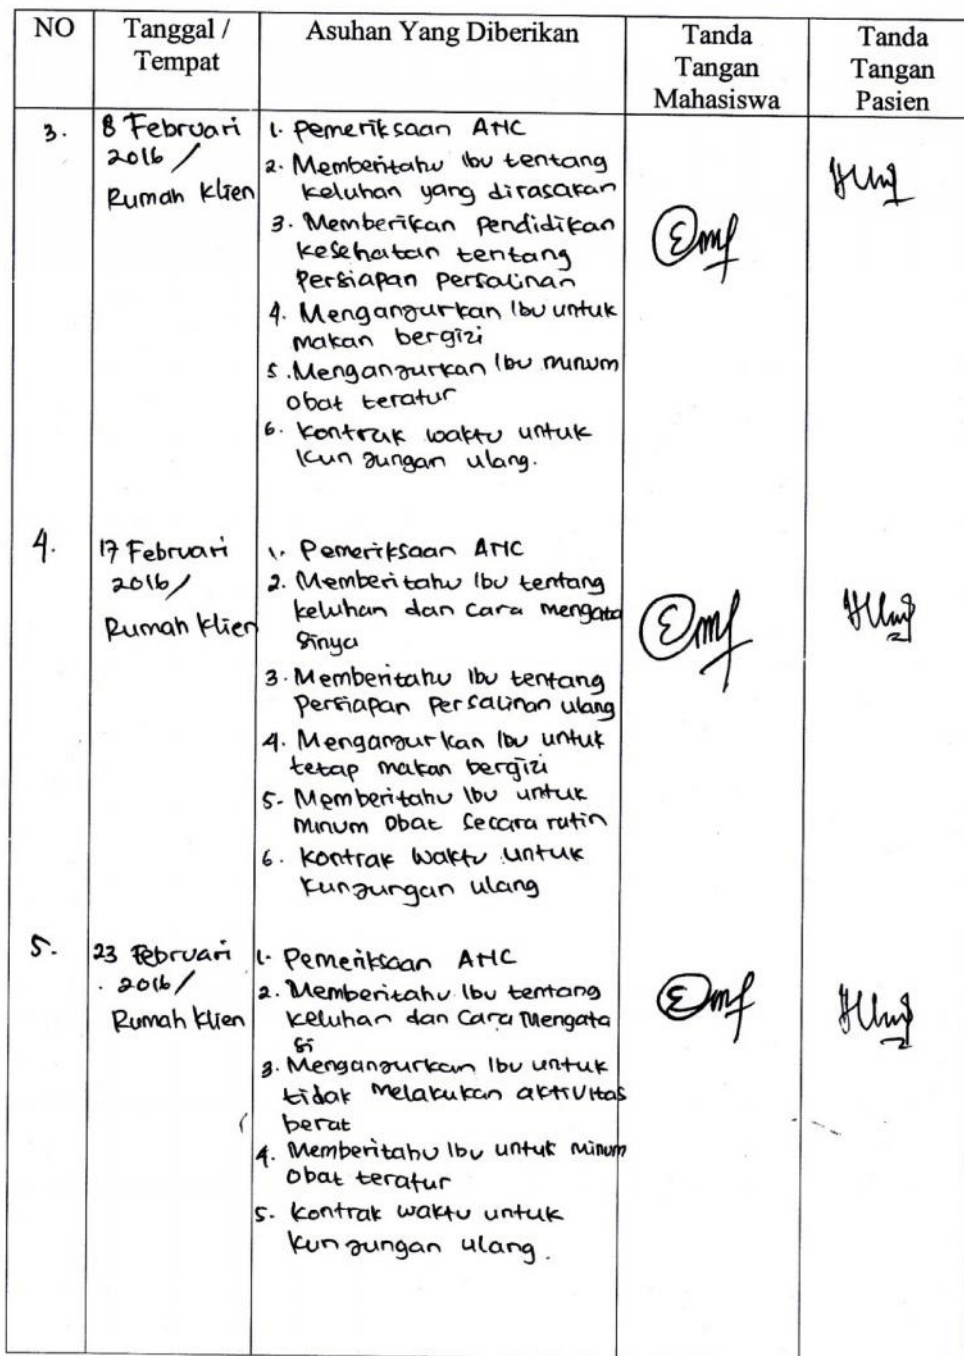 NO
Tanggal /
Tempat
Asuhan Yang Diberikan
Tanda
Tangan
Mahasiswa
Tanda
Tangan
Pasien
3.
8 Februari
2016 /
Rumah Klien
1. Pemeriksaan ANC
2. Memberitahu Ibu tentang
keluhan yang dirasakan
3. Memberikan Pendidikan
kesehatan tentang
Persiapan Persalinan
4. Menganjurkan Ibu untuk
makan bergizi
5. Menganjurkan Ibu minum
obat teratur
6. Kontrak waktu untuk
Kunjungan ulang.
4.
17 Februari
2016/
Rumah Klien
1. Pemeriksaan ANC
2. Memberitahu Ibu tentang
keluhan dan cara mengata
sinya
3. Memberitahu Ibu tentang
Persiapan Persalinan ulang
4. Menganjurkan Ibu untuk
tetap makan bergizi
5. Memberitahu Ibu untuk
Minum Obat Secara rutin
6. Kontrak Waktu untuk
Kunjungan ulang
5.
23 Februari
2016/
Rumah Klien
1. Pemeriksaan ANC
2. Memberitahu Ibu tentang
keluhan dan Cara Mengata
si
3. Menganjurkan Ibu untuk
tidak Melakukan aktivitas
berat
4. Memberitahu Ibu untuk Minum
Obat teratur
5. Kontrak waktu untuk
Kunjungan ulang.